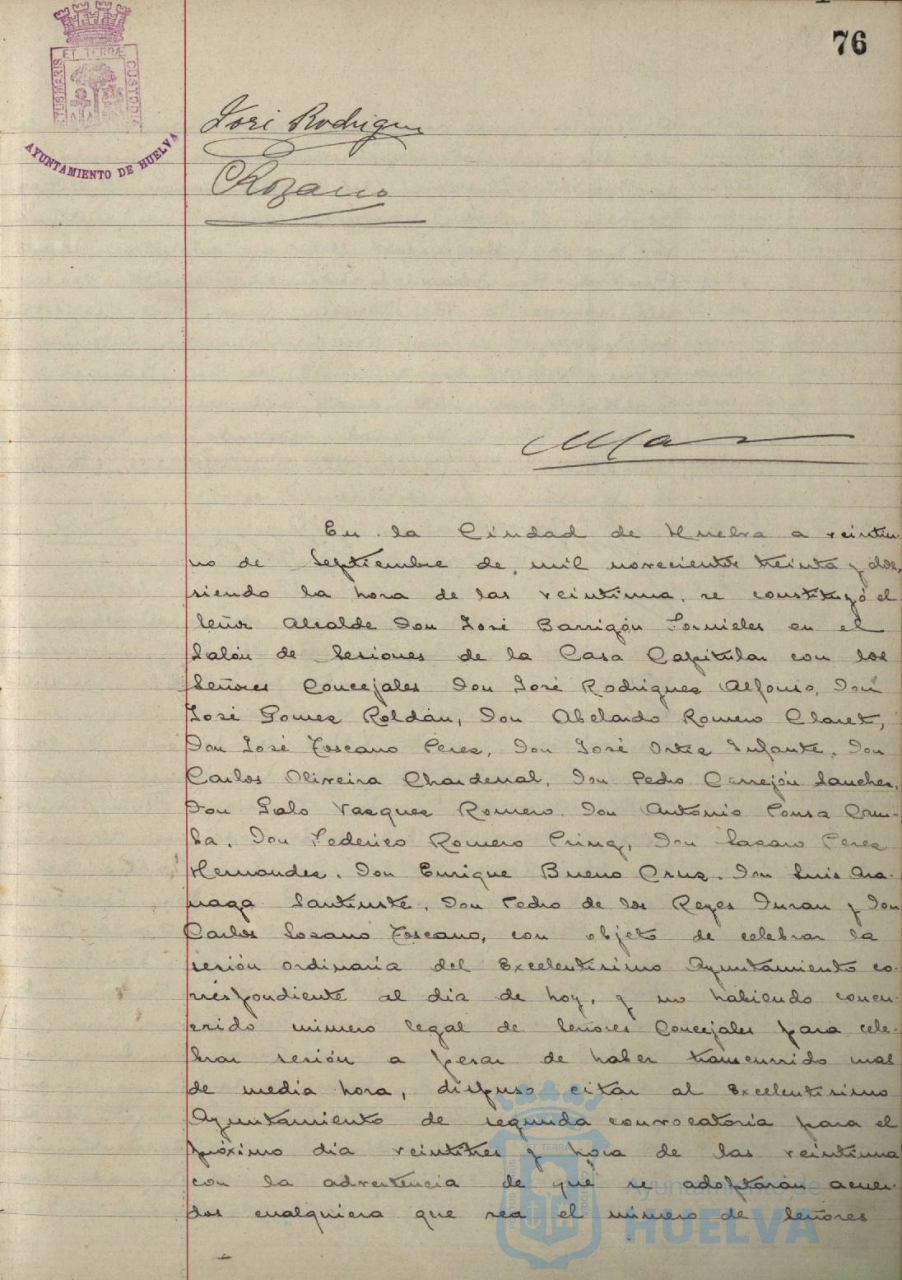 76
PORTUS MARIS ET TERRAE CUSTODIA
AYUNTAMIENTO DE HUELVA
José Rodrigue
CLozano
En la Ciudad de Huelva a veintiu-
no de Septiembre de mil novecientos treinta y dos,
siendo la hora de las veintiuna, se constituyó el
Señor Alcalde Don José Barrigón Fornieles en el
Salón de Sesiones de la Casa Capitular con los
Señores Concejales Don José Rodriguez Alfonso, Don
José Gomez Roldán, Don Abelardo Romero Claret,
Don José Toscano Perez, Don José Ortiz Infante, Don
Carlos Oliveira Chardenal, Don Pedro Cerrejón Sanchez,
Don Galo Vazquez Romero, Don Antonio Ponsa Cam-
ba, Don Federico Romero Prinz, Don Lazaro Perez
Hernandez, Don Enrique Bueno Cruz, Don Luis Ara-
naga Santiuste, Don Pedro de los Reyes Duran y Don
Carlos Lozano Toscano, con objeto de celebrar la
sesión ordinaria del Excelentisimo Ayuntamiento co-
rrespondiente al dia de hoy, y no habiendo concu-
rrido número legal de Señores Concejales para cele-
brar sesión a pesar de haber transcurrido mas
de media hora, dispuso citar al Excelentisimo
Ayuntamiento de segunda convocatoria para el
próximo dia veintitres y hora de las veintiuna
con la advertencia de que se adoptarán acuer-
dos cualquiera que sea el número de Señores
Ayuntamiento de
HUELVA